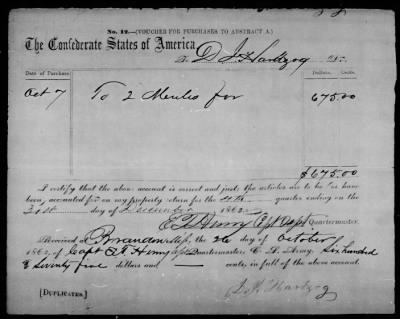 No. 12.—(VOUCHER FOR PURCHASES TO ABSTRACT A.)
The Confederate States of America
To D J Hartzog DR.
Date of Purchase. Dollars. Cents.
Oct 7 To 2 Meules for 675.00
$675.00
I certify that the above account is correct and just; the articles are to be (or have
been) accounted for on my property return for the 4th quarter ending on the
31st day of December 1862
E T Henry Capt & Asst Quartermaster.
Received at Brandon Miss, the 26 day of October
1862, of Capt E T Henry Asst Quartermaster, C. S. Army, Six hundred
& Seventy five dollars and cents, in full of the above account.
[DUPLICATES.]
D. J. Hartzog